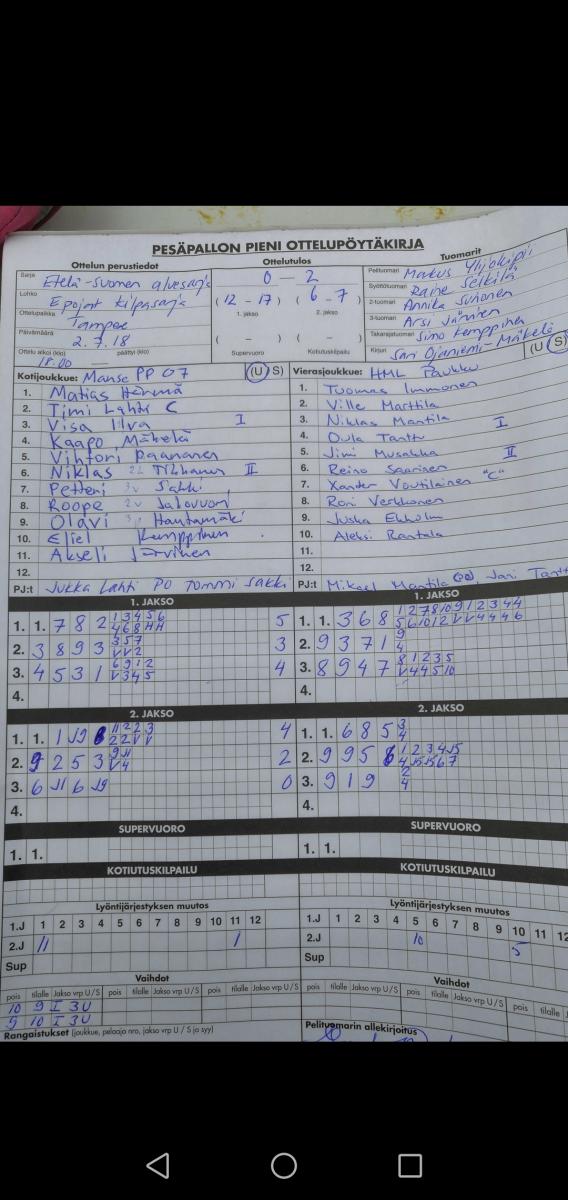 PESÄPALLON PIENI OTTELUPÖYTÄKIRJA
Ottelun perustiedot
Ottelutulos
Tuomarit
Sarja Etelä-Suomen aluesarja
Lohko Epojat kilpasarja
Ottelupaikka Tampee
Päivämäärä 2.7.18
Ottelu alkoi (klo) päättyi (klo)
18.00
0 - 2
(12 - 17) (6 - 7)
1. jakso 2. jakso
( - ) ( - )
Supervuoro Kotiutuskilpailu
Pelituomari Markus Ylijokipii
Syöttötuomari Raine Seikilä
2-tuomari Annika Suhonen
3-tuomari Arsi Jäminen
Takarajatuomari Simo Kemppinen
Kirjuri Sari Ojaniemi-Mäkelä
Kotijoukkue: Manse PP 07 (U S)
1. Matias Härmä
2. Timi Lahti C
3. Visa Ilva I
4. Kaapo Mäkelä
5. Vihtori Paananen
6. Niklas Tiihonen II
7. Petteri Sakki
8. Roope Jalovuori
9. Olavi Hautamäki
10. Eliel Kemppinen
11. Akseli Järvinen
12.
PJ:t Jukka Lahti PO Tommi Sakki
Vierasjoukkue: HML Paukku (U S)
1. Tuomas Immonen
2. Ville Marttila
3. Niklas Mantila I
4. Oula Tanttu
5. Jimi Musakka II
6. Reino Saarinen
7. Xander Voutilainen "C"
8. Roni Verkkonen
9. Juska Ekholm
10. Aleksi Rantala
11.
12.
PJ:t Mikael Mantila (PO), Jari Tantt
1. JAKSO
1. 1. 7 8 2 1 3 4 5 6 5
4 6 8 H H
2. 3 8 9 3 3 5 7 3
V V 2
3. 4 5 3 1 6 9 1 2 4
V 3 4 5
4.
1. JAKSO
1. 1. 3 6 8 1 2 7 8 10 9 1 2 3 4 4
5 6 10 12 V V 4 4 4 6
2. 9 3 7 1 9
4
3. 8 9 4 7 8 1 2 3 5
V 4 4 5 10
4.
2. JAKSO
1. 1. 1 J9 8 11 2 2 3 4
2 2 V V
2. 9 2 5 3 9 11 2
V 4
3. 6 J1 6 J9 0
4.
2. JAKSO
1. 1. 6 8 5 3
4
2. 9 9 5 6 1 2 3 4 J5
4 J5 J5 6 7
3. 9 1 9 2
4
4.
SUPERVUORO
1. 1.
SUPERVUORO
1. 1.
KOTIUTUSKILPAILU
KOTIUTUSKILPAILU
Lyöntijärjestyksen muutos
1.J 1 2 3 4 5 6 7 8 9 10 11 12
2.J 11 1
Sup
Lyöntijärjestyksen muutos
1.J 1 2 3 4 5 6 7 8 9 10 11 12
2.J 10 5
Sup
Vaihdot
pois tilalle Jakso vrp U / S pois tilalle Jakso vrp U / S pois tilalle Jakso vrp U / S
10 9 I 3U
9 10 I 3U
Vaihdot
pois tilalle Jakso vrp U / S pois tilalle Jakso vrp U / S pois tilalle Jakso
Rangaistukset (joukkue, pelaaja nro, jakso vrp U / S ja syy)
Pelituomarin allekirjoitus